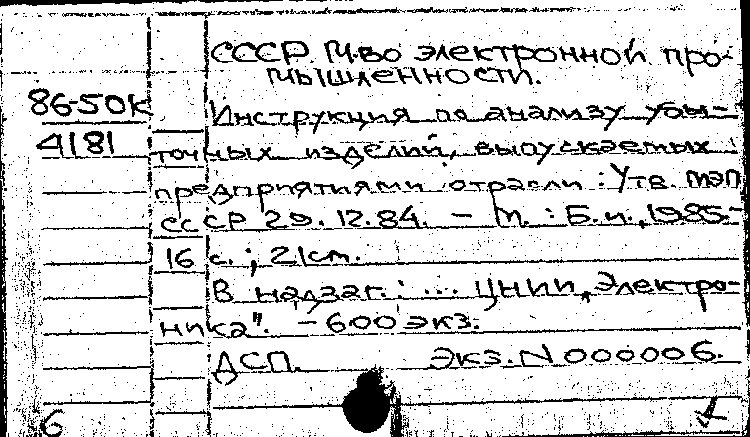 СССР. М-во электронной про-
мышленности.
86-50к
Инструкция по анализу убы-
4181
точных изделий, выпускаемых
предприятиями отрасли: Утв. МЭП
СССР 29.12.84. - М.: Б.и., 1985.-
16 с.; 21см.
В надзаг.: ... ЦНИИ „Электро-
ника". - 600 экз.
ДСП. Экз. N 000006.
б